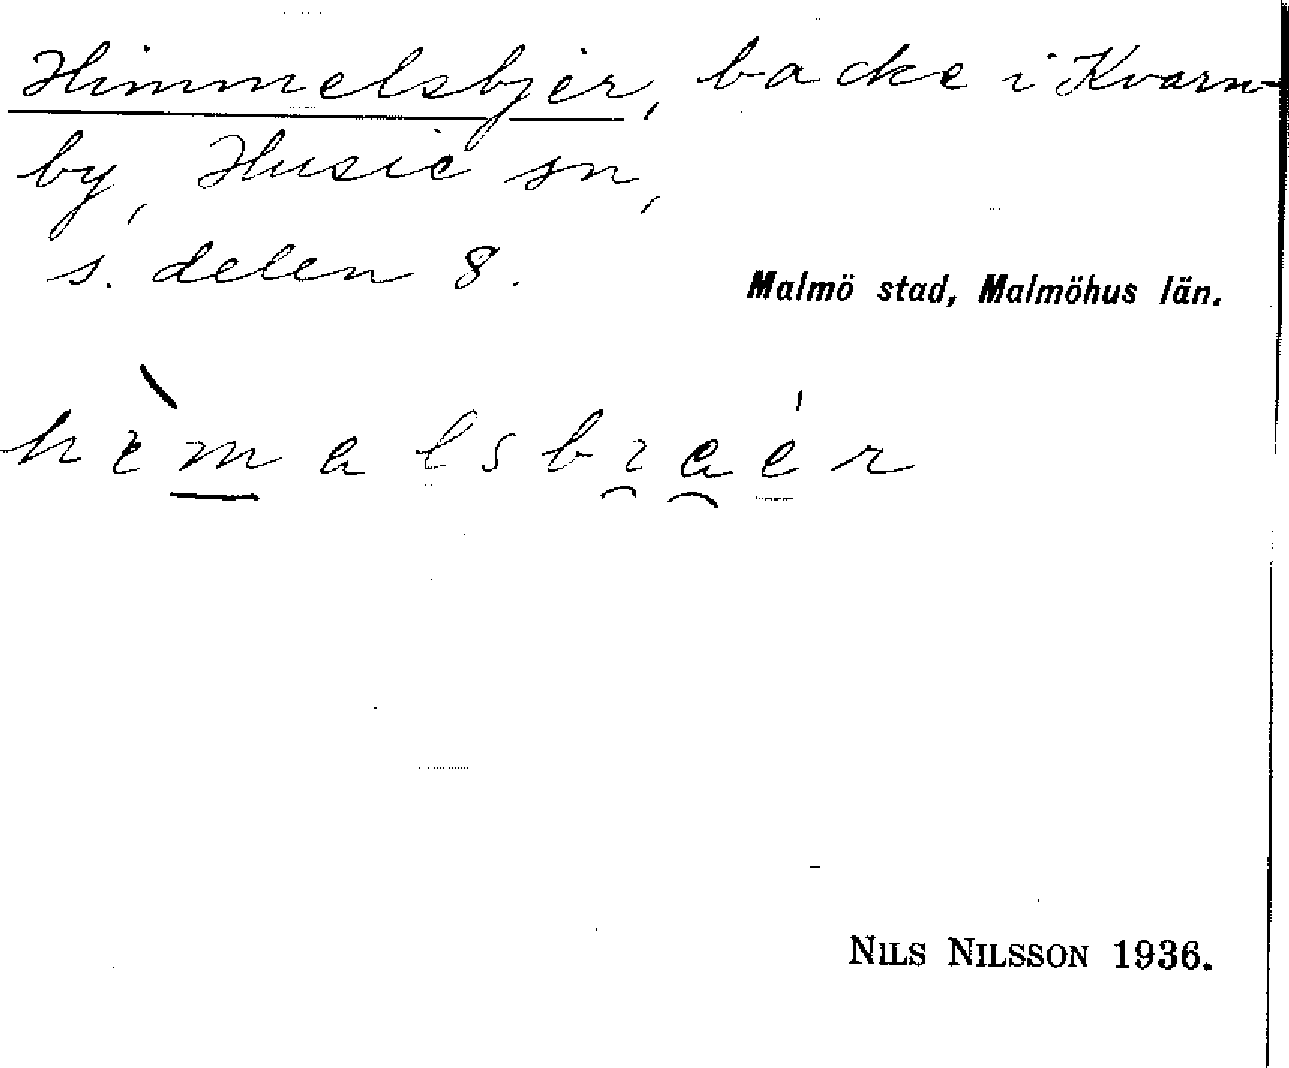 Himmelsbjer, backe i Kvarn-
by, Husie sn,
s. delen 8.
Malmö stad, Malmöhus län.
NILS NILSSON 1936.